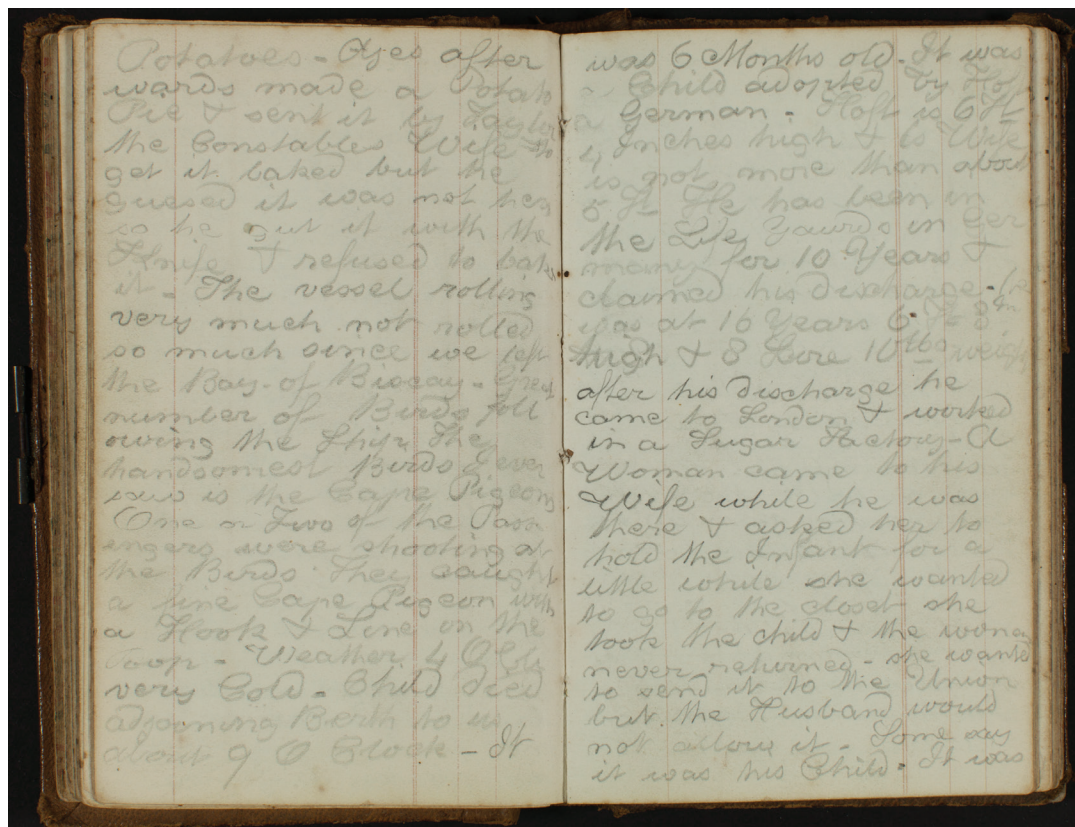 Potatoes - Ojes after
wards made a Potato
Pie & sent it by Taylor
the Constables Wife to
get it baked but he
guesed it was not hers
so he cut it with the
Knife & refused to bake
it - The vessel rolling
very much not rolled
so much since we left
the Bay of Biscay - Great
number of Birds foll
owing the Ship The
handsomest Birds I ever
saw is the Cape Pigeon
One or Two of the Pass
engers were shooting at
the Birds They caught
a fine Cape Pigeon with
a Hook & Line on the
Poop - Weather 4 O Clk
very Cold - Child died
adjoening Berth to us
about 9 O Clock - It
was 6 Months old - It was
a Child adopted by Hoft
a German - Hoft is 6 Ft
4 Inches high & is Wife
is not more than about
5 Ft He has been in
the Life Gaurds in Ger
many for 10 Years &
claimed his discharge - he
was at 16 Years 6 Ft 3 in
high & 8 Score 10 lbs weight
after his discharge he
came to London & worked
in a Sugar Factory - A
Woman came to his
Wife while he was
there & asked her to
hold the Infant for a
little while she wanted
to go to the closet she
took the child & the woman
never returned - she wanted
to send it to the Union
but the Husband would
not allow it - Some say
it was his Child - It was